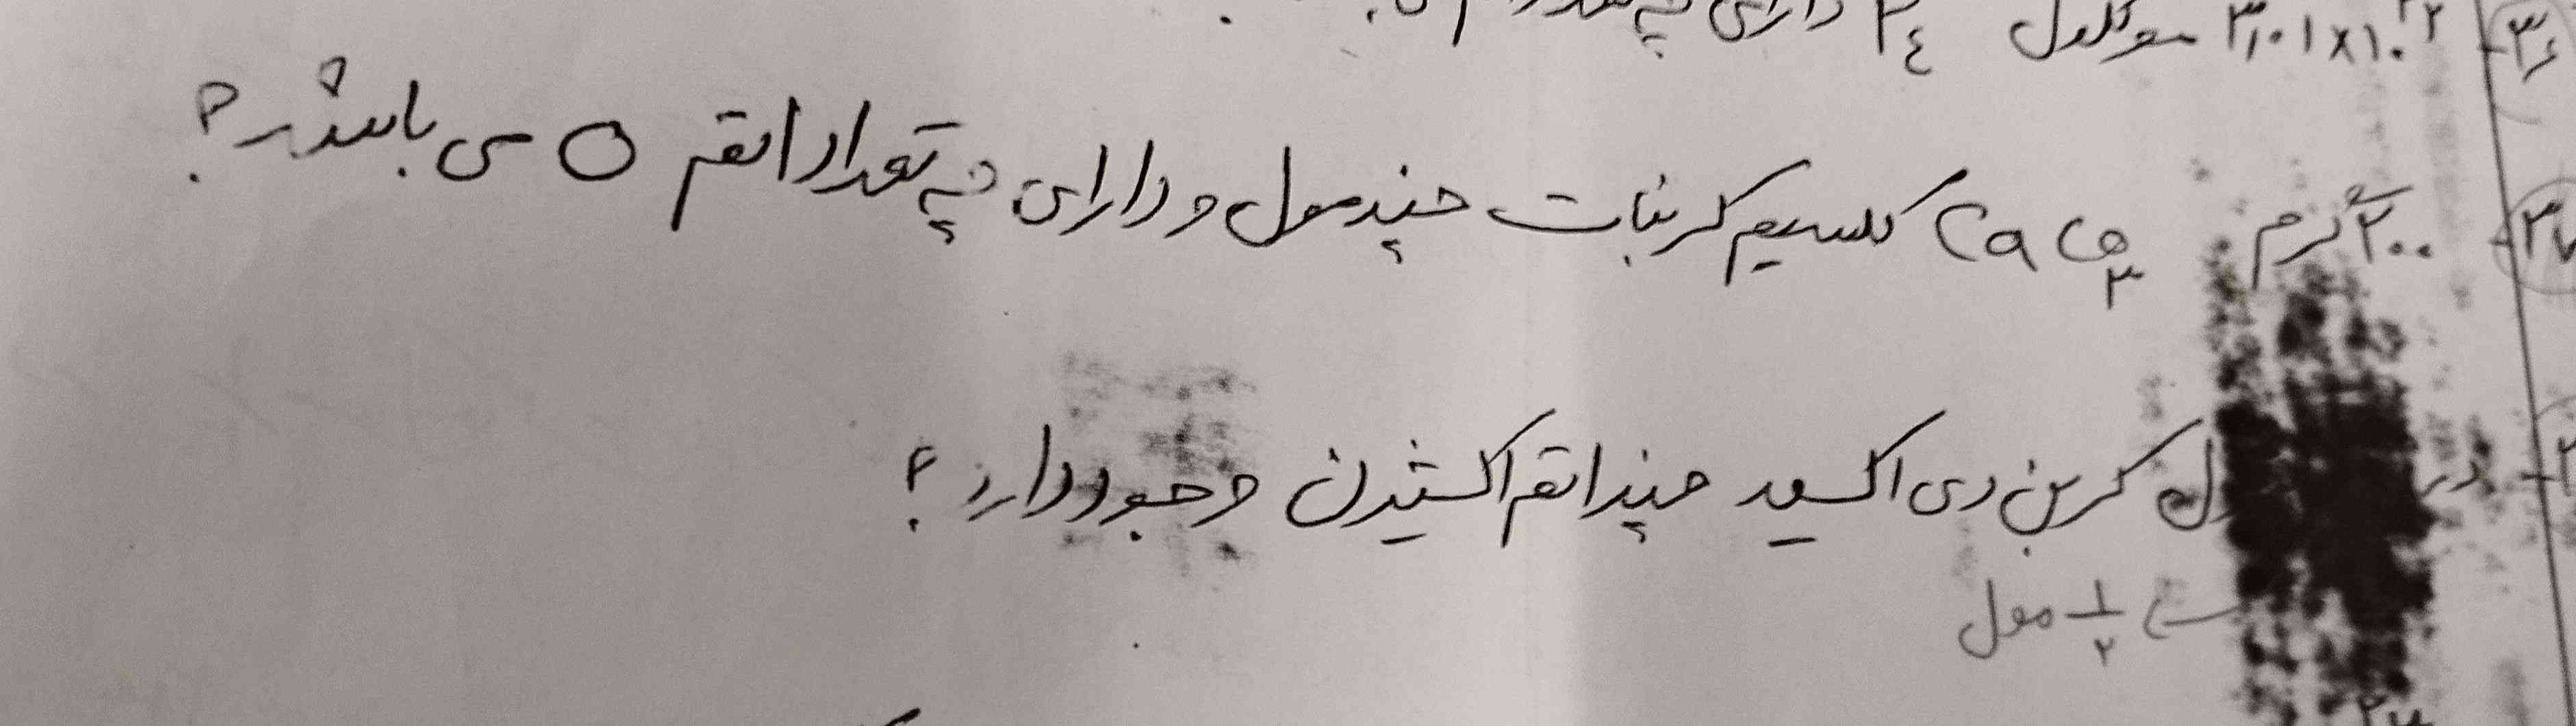 ۳۶- ۳,۰۱×۱۰^۲۲ مولکول P₄ دارای چه تعداد
۳۷- ۲۰۰ گرم CaCO₃ کلسیم کربنات چند مول و دارای چه تعداد اتم O می باشد؟
در کربن دی اکسید چند اتم اکسیژن وجود دارد؟
۱/۲ مول